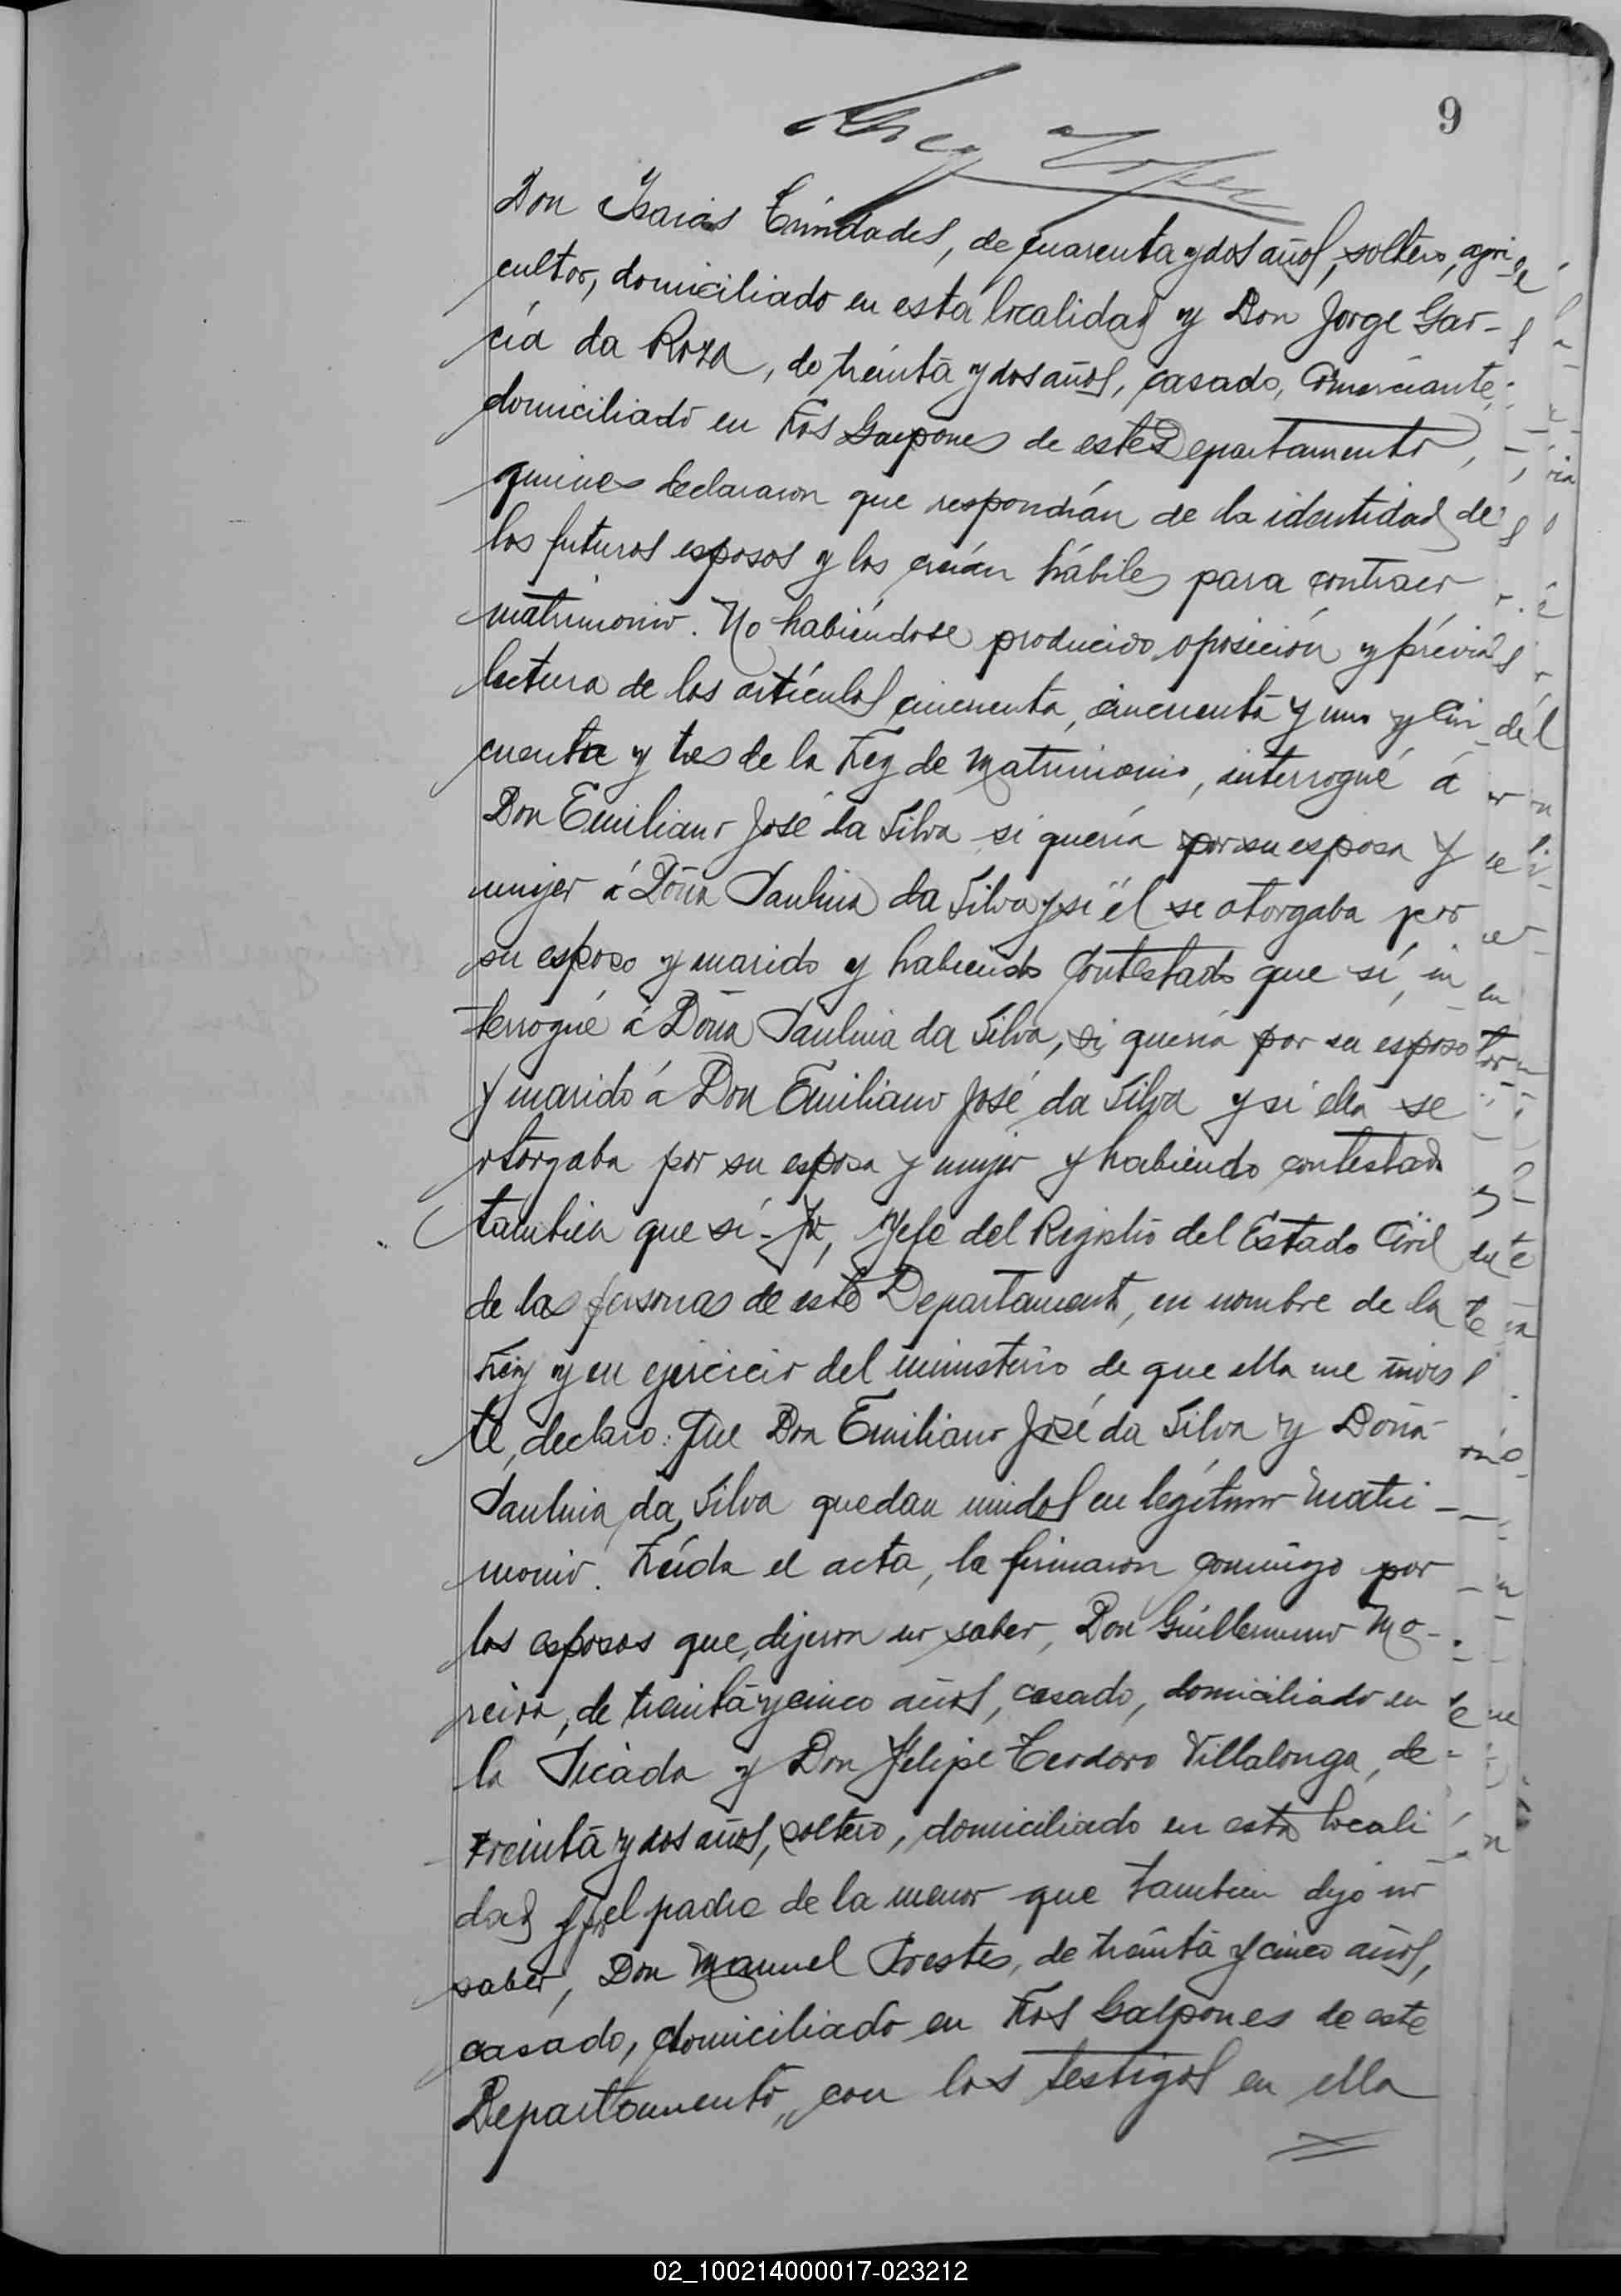 9
Don Isaias Trindades, de cuarenta y dos años, soltero, agri
cultor, domiciliado en esta localidad y Don Jorge Gar-
cía da Roza, de treinta y dos años, casado, Comerciante,
domiciliado en Los Galpones de este Departamento,
quienes declararon que respondían de la identidad de
los futuros esposos y los creían hábiles para contraer
matrimonio. No habiéndose producido oposición y prévia
lectura de los artículos cincuenta, cincuenta y uno y cin
cuenta y tres de la Ley de Matrimonio, interrogué á
Don Emiliano José da Silva si quería por su esposa y
mujer á Doña Paulina da Silva y si él se otorgaba por
su esposo y marido y habiendo contestado que sí, in
terrogué á Doña Paulina da Silva, si quería por su esposo
y marido á Don Emiliano José da Silva y si ella se
otorgaba por su esposa y mujer y habiendo contestado
tambien que sí - Yo, Jefe del Registro del Estado Civil
de las personas de este Departamento, en nombre de la
Ley y en ejercicio del ministerio de que ella me invis
te, declaro: Que Don Emiliano José da Silva y Doña
Paulina da Silva quedan unidos en legítimo matri-
monio. Leída el acta, la firmaron conmigo por
los esposos que dijeron no saber, Don Guillermino Mo-
reira, de treinta y cinco años, casado, domiciliado en
la Picada y Don Felipe Teodoro Villalonga, de
treinta y dos años, soltero, domiciliado en esta locali
dad y por el padre de la menor que tambien dijo no
saber, Don Manuel Prestes, de treinta y cinco años,
casado, domiciliado en Los Galpones de este
Departamento, con los testigos en ella
02_100214000017-023212